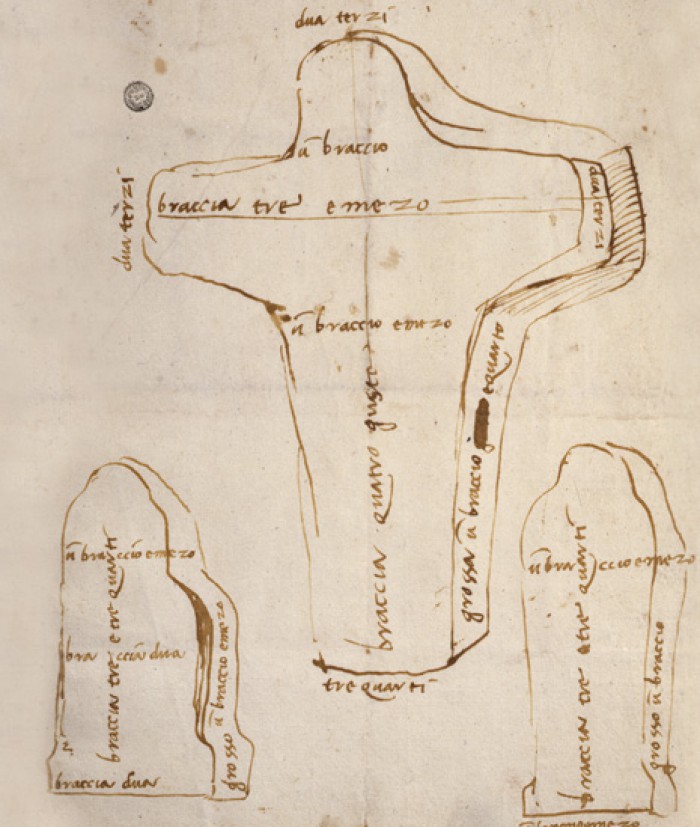 dua terzi
ũ braccio
dua terzi
braccia tre e mezo
dua terzi
ũ braccio emezo
braccia quatro guste
grossa ũ braccio equarto
tre quarti
ũ braccio emezo
braccia tre etre quarti
braccia dua
grosso ũ braccio emezo
braccia dua
ũ braccio emezo
braccia tre etre quarti
grosso ũ braccio